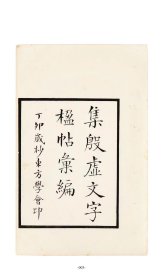 集殷虛文字
楹帖彙編
丁卯歲杪東方學會印